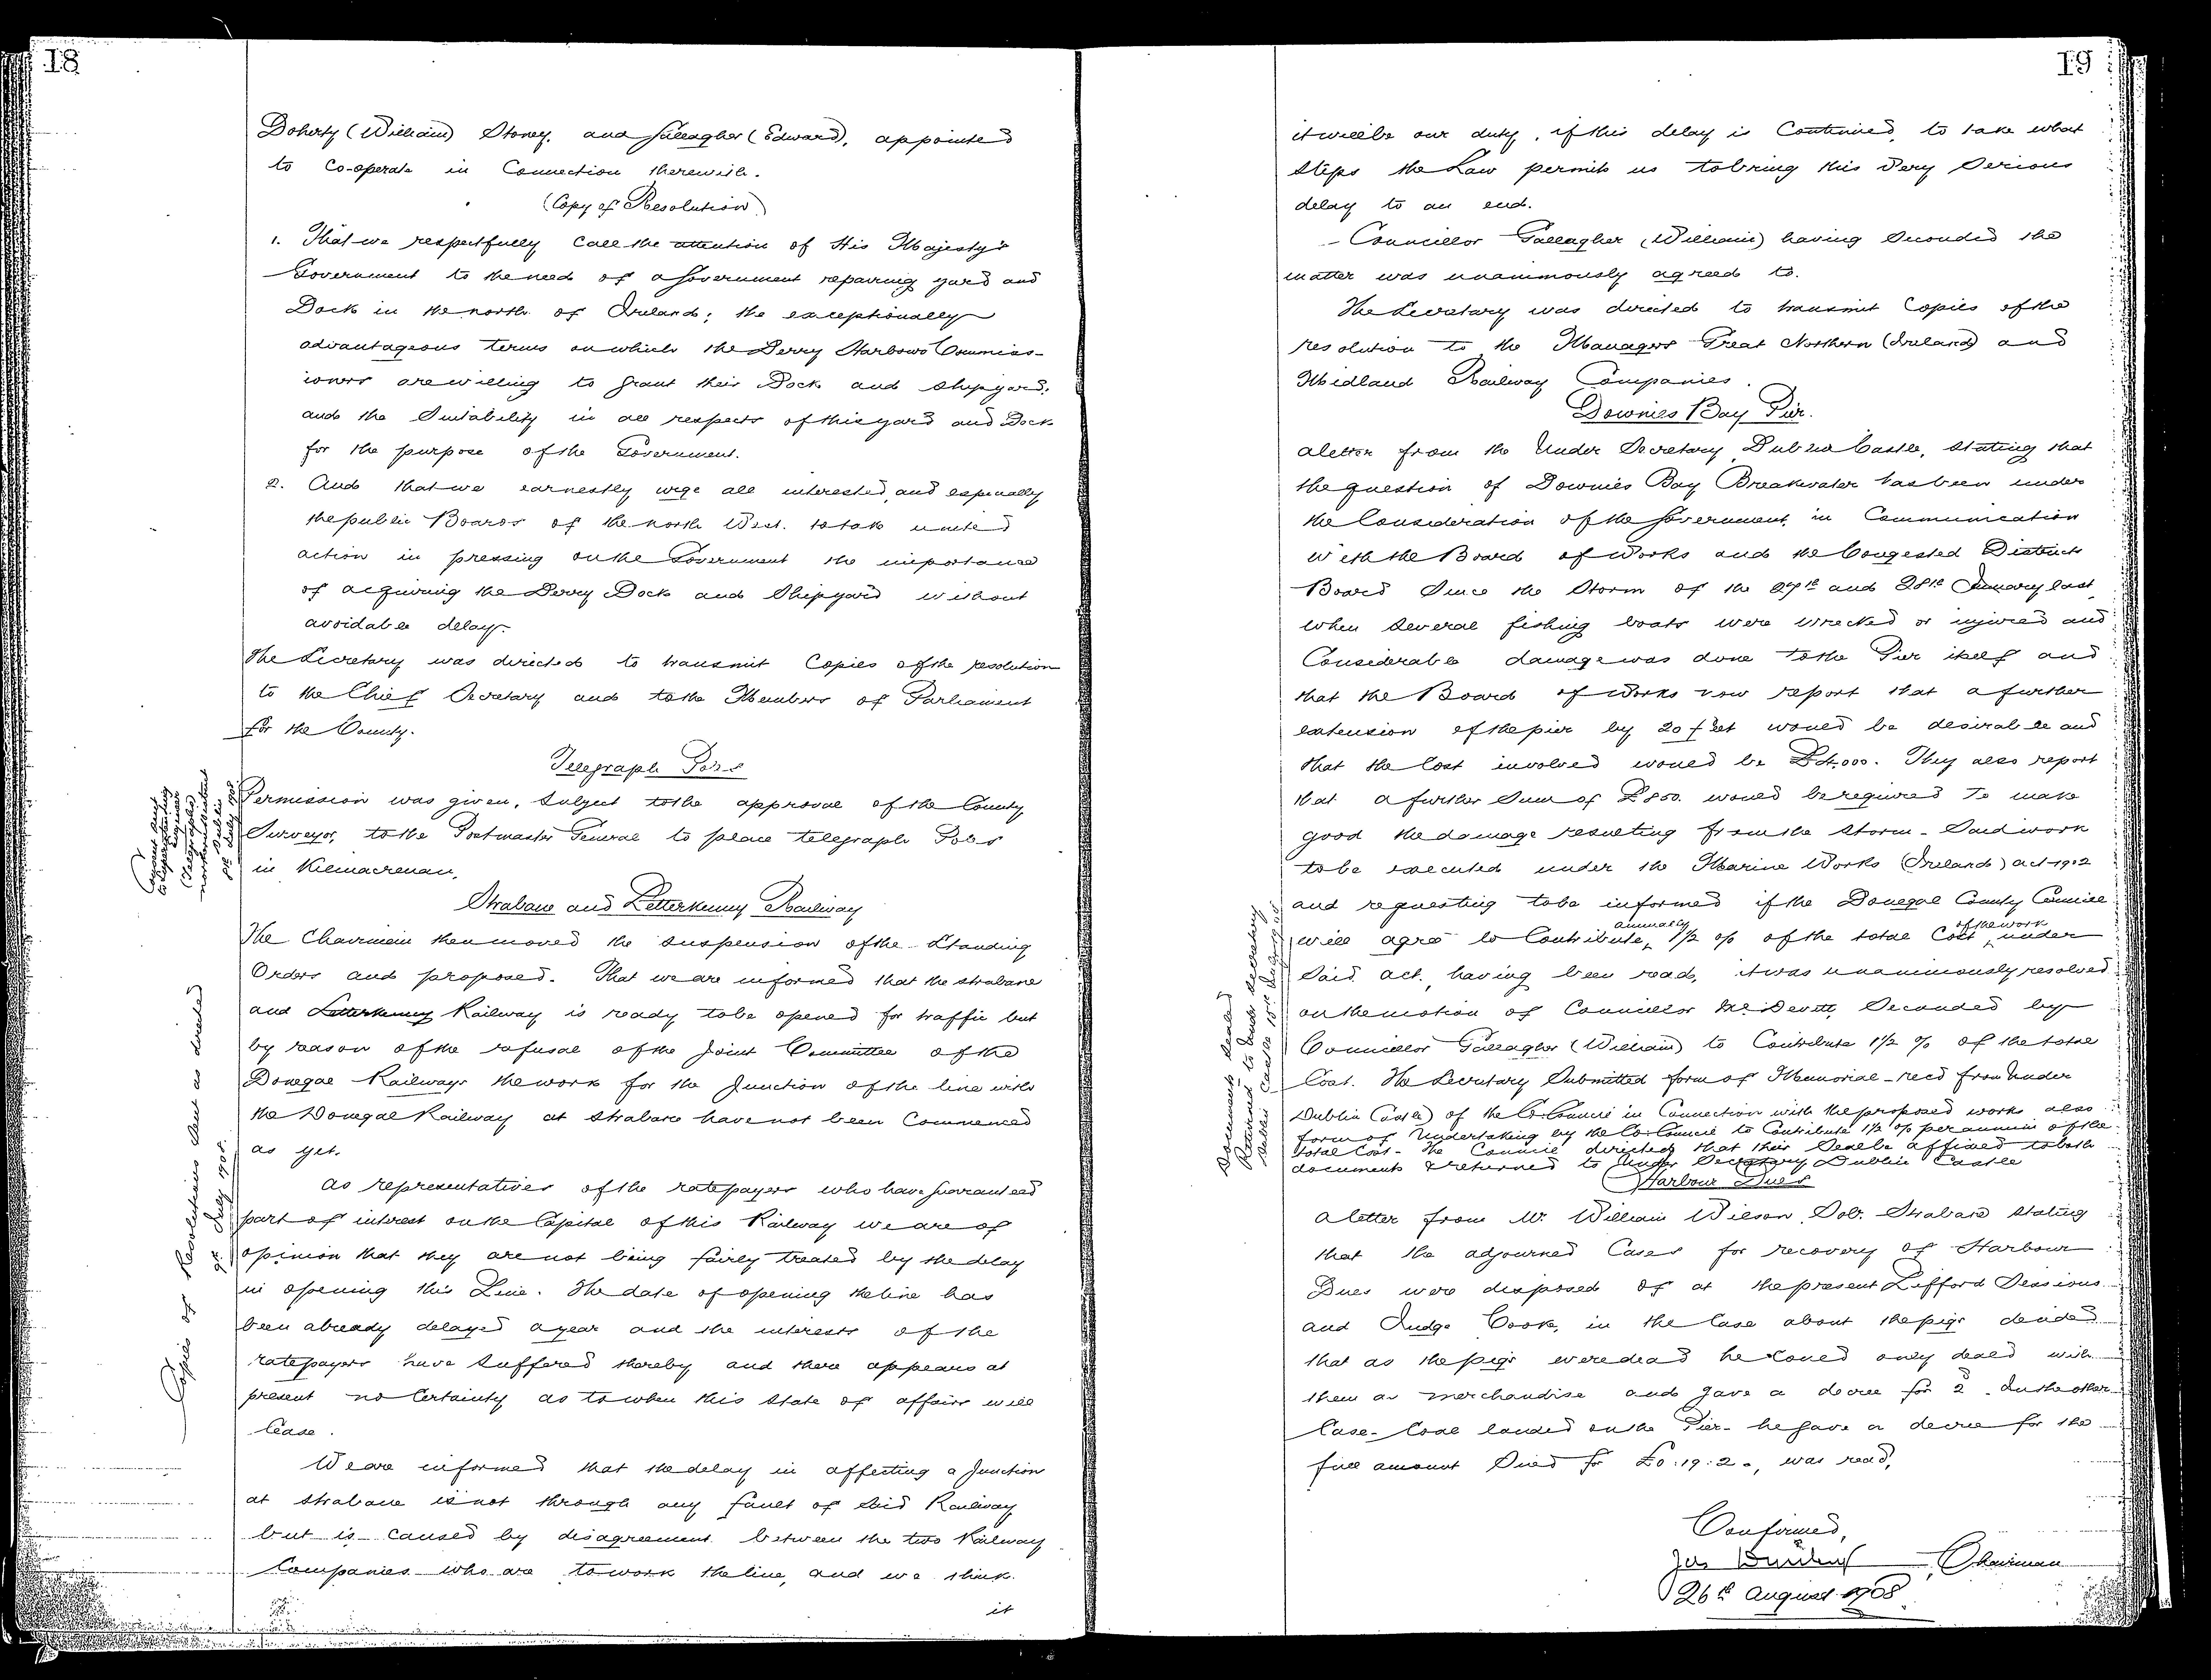 18
Doherty (William) Stoney. and Gallagher (Edward), appointed
to Co-operate in Connection therewith.
(Copy of Resolution)
1. That we respectfully Call the attention of His Majesty's
Government to the need of a Government repairing yard and
Dock in the north of Ireland; the exceptionally
advantageous terms on which the Derry Harbour Commiss-
ioners are willing to grant their Dock and Shipyard;
and the Suitability in all respects of this yard and Dock
for the purpose of the Government.
2. And that we earnestly urge all interested, and especially
the public Boards of the North West. to take united
action in pressing on the Government the importance
of acquiring the Derry Dock and Shipyard without
avoidable delay.
The Secretary was directed to transmit Copies of the resolution
to the Chief Secretary and to the Members of Parliament
for the County.
Telegraph Poles
Permission was given, subject to the approval of the County
Surveyor, to the Postmaster General to place telegraph Poles
in Kilmacrenan.
Strabane and Letterkenny Railway
The Chairman then moved the suspension of the Standing
Orders and proposed. That we are informed that the Strabane
and Letterkenny Railway is ready to be opened for traffic but
by reason of the refusal of the Joint Committee of the
Donegal Railways the work for the Junction of the line with
the Donegal Railway at Strabane have not been Commenced
as yet.
As representatives of the ratepayers who have guaranteed
part of interest on the Capital of this Railway we are of
opinion that they are not being fairly treated by the delay
in opening this Line. The date of opening the line has
been already delayed a year and the interests of the
ratepayers have suffered thereby and there appears at
present no Certainty as to when this State of affairs will
Cease.
We are informed that the delay in affecting a Junction
at Strabane is not through any fault of said Railway
but is caused by disagreement between the two Railway
Companies who are to work the line, and we think.
it
Copies of Resolutions sent as directed
9th July 1908.
19
it will be our duty, if this delay is Continued, to take what
steps the Law permits us to bring this Very Serious
delay to an end.
Councillor Gallagher (William) having Seconded the
matter was unanimously agreed to.
The Secretary was directed to transmit Copies of the
resolution to the Managers Great Northern (Ireland) and
Midland Railway Companies.
Downies Bay Pier.
A letter from the Under Secretary Dublin Castle, stating that
the question of Downies Bay Breakwater has been under
the Consideration of the Government in Communication
with the Board of Works and the Congested Districts
Board Since the Storm of the 27th and 28th January last,
when Several fishing boats were wrecked or injured and
Considerable damage was done to the Pier itself and
that the Board of Works now report that a further
extension of the pier by 20 feet would be desirable and
that the Cost involved would be £4,000. They also report
that a further Sum of £850. would be required to make
good the damage resulting from the Storm - Said work
to be executed under the Marine Works (Ireland) Act 1902
and requesting to be informed if the Donegal County Council
will agree to Contribute, annually 1½ % of the total Cost of the work, under
Said Act, having been read, it was unanimously resolved
on the motion of Councillor McDevitt, Seconded by
Councillor Gallagher (William) to Contribute 1½ % of the total
Cost. The Secretary Submitted form of Memorial - recd from Under
Dublin Castle) of the Co. Council in Connection with the proposed works also
form of Undertaking by the Co. Council to Contribute 1½ % per annum of the
total Cost - The Council directed that their Seal be affixed to both
documents & returned to Under Secretary Dublin Castle
Documents Sealed
Returned to Under Secretary
Dublin Castle
Harbour Dues
A letter from Mr. William Wilson, Solr. Strabane stating
that the adjourned Cases for recovery of Harbour
Dues were disposed of at the present Lifford Sessions
and Judge Cooke, in the Case about the pigs decided
that as the pigs were dead he could only deal with
them as merchandise and gave a decree for 2. In the other
Case - Coal landed on the Pier - he gave a decree for the
full amount Sued for £0:19:2., was read.
Confirmed,
Chairman
26th August 1908